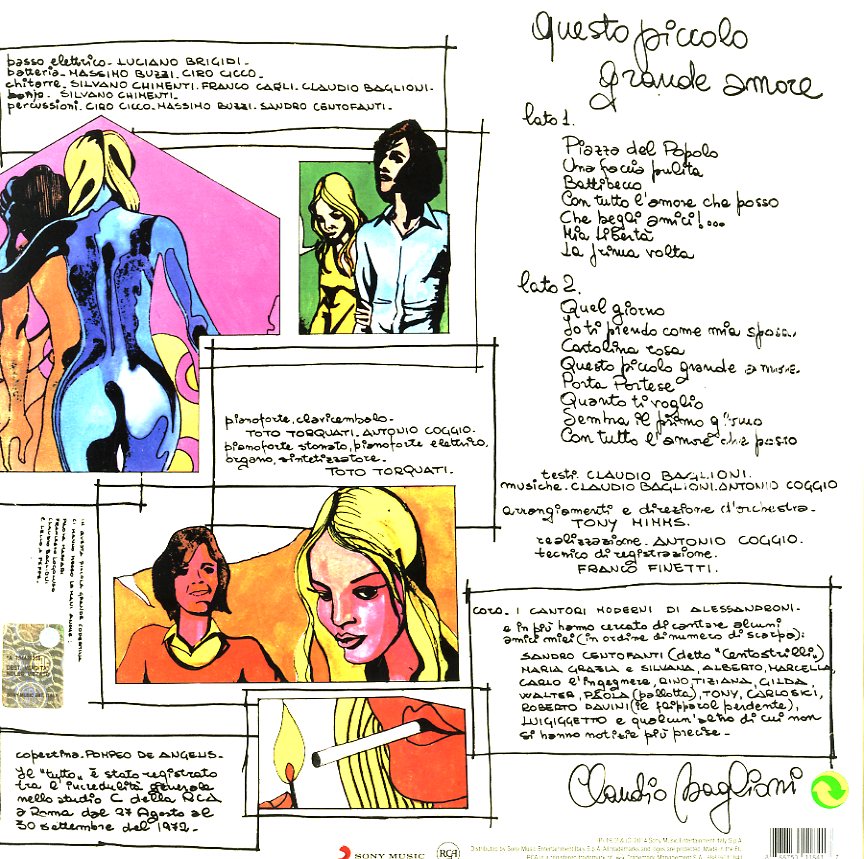 basso elettrico - LUCIANO BRIGIDI -
batteria - MASSIMO BUZZI - CIRO CICCO -
chitarre - SILVANO CHIMENTI - FRANCO CARLI - CLAUDIO BAGLIONI -
banjo - SILVANO CHIMENTI -
percussioni - CIRO CICCO - MASSIMO BUZZI - SANDRO CENTOFANTI -
questo piccolo
grande amore
lato 1.
Piazza del Popolo
Una faccia pulita
Battibecco
Con tutto l'amore che posso
Che begli amici!...
Mia libertà
La prima volta
lato 2.
Quel giorno
Io ti prendo come mia sposa
Cartolina rosa
Questo piccolo grande amore
Porta Portese
Quanto ti voglio
Sembra il primo giorno
Con tutto l'amore che posso
pianoforte, clavicembalo -
TOTO TORQUATI - ANTONIO COGGIO -
pianoforte stonato, pianoforte elettrico,
organo, sintetizzatore -
TOTO TORQUATI -
testi - CLAUDIO BAGLIONI -
musiche - CLAUDIO BAGLIONI - ANTONIO COGGIO
arrangiamenti e direzione d'orchestra -
TONY MIMMS -
realizzazione - ANTONIO COGGIO -
tecnico di registrazione -
FRANCO FINETTI -
IN QUESTA PICCOLA GRANDE COPERTINA
CI HANNO MESSO LE MANI ANCHE:
CLAUDIO BAGLIONI
coro - I CANTORI MODERNI DI ALESSANDRONI -
e in più hanno cercato di cantare alcuni
amici miei (in ordine di numero di scarpa):
SANDRO CENTOFANTI (detto "Centostrilli")
MARIA GRAZIA e SILVANA, ALBERTO, MARCELLA,
CARLO l'ingegnere, RINO, TIZIANA, GILDA,
WALTER, PAOLA (pallotta), TONY, CARLO SICI,
ROBERTO DAVINI (il flipparol perdente),
LUIGIGGETTO e qualcun'altro di cui non
si hanno notizie più precise -
copertina - POMPEO DE ANGELIS -
Il "tutto" è stato registrato
tra l'incredulità generale
nello studio C della RCA
a Roma dal 27 Agosto al
30 settembre del 1972 -
Claudio Baglioni
SONY MUSIC
RCA